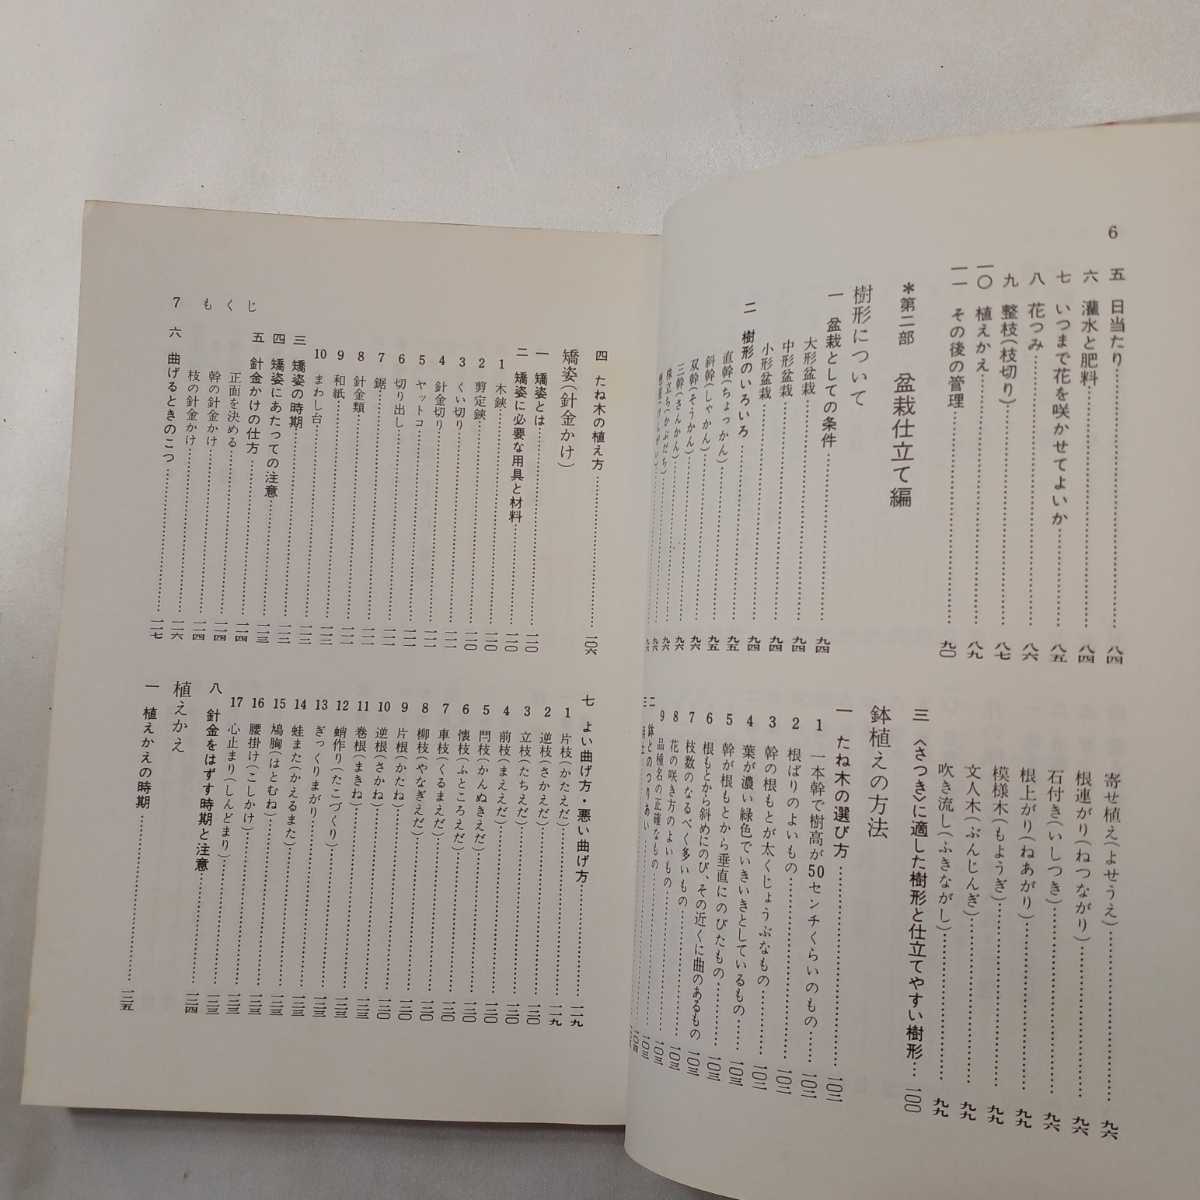 6
五 日当たり 八四
六 灌水と肥料 八四
七 いつまで花を咲かせてよいか 八五
八 花つみ 八六
九 整枝(枝切り) 八七
一〇 植えかえ 八九
一一 その後の管理 九〇
*第二部 盆栽仕立て編
樹形について
一 盆栽としての条件 九四
大形盆栽 九四
中形盆栽 九四
小形盆栽 九四
二 樹形のいろいろ 九五
直幹(ちょっかん) 九五
斜幹(しゃかん) 九五
双幹(そうかん) 九六
三幹(さんかん) 九六
株立ち(かぶだち) 九六
寄せ植え(よせうえ) 九六
根連がり(ねつながり) 九六
石付き(いしつき) 九六
根上がり(ねあがり) 九九
模様木(もようぎ) 九九
文人木(ぶんじんぎ) 九九
吹き流し(ふきながし) 九九
三 〈さつき〉に適した樹形と仕立てやすい樹形 一〇〇
鉢植えの方法
一 たね木の選び方 一〇二
1 一本幹で樹高が50センチくらいのもの 一〇二
2 根ばりのよいもの 一〇二
3 幹の根もとが太くじょうぶなもの 一〇二
4 葉が濃い緑色でいきいきとしているもの 一〇三
5 幹が根もとから垂直にのびたもの 一〇三
6 根もとから斜めにのび、その近くに曲のあるもの 一〇三
7 枝数のなるべく多いもの 一〇三
8 花の咲き方のよいもの 一〇三
9 品種名の正確なもの 一〇三
二 鉢とのつりあい 一〇四
7 もくじ
四 たね木の植え方 一〇六
矯姿(針金かけ)
一 矯姿とは 一一〇
二 矯姿に必要な用具と材料 一一〇
1 木鋏 一一〇
2 剪定鋏 一一〇
3 くい切り 一一〇
4 針金切り 一一一
5 ヤットコ 一一一
6 切り出し 一一一
7 鋸 一一一
8 針金類 一一一
9 和紙 一一一
10 まわし台 一一二
三 矯姿の時期 一一二
四 矯姿にあたっての注意 一一二
五 針金かけの仕方 一一三
正面を決める 一一四
幹の針金かけ 一一四
枝の針金かけ 一一四
六 曲げるときのこつ 一一六
一一七
七 よい曲げ方・悪い曲げ方 一一九
1 片枝(かたえだ) 一一九
2 逆枝(さかえだ) 一二〇
3 立枝(たちえだ) 一二〇
4 前枝(まええだ) 一二〇
5 閂枝(かんぬきえだ) 一二〇
6 懐枝(ふところえだ) 一二〇
7 車枝(くるまえだ) 一二〇
8 柳枝(やなぎえだ) 一二〇
9 片根(かたね) 一二〇
10 逆根(さかね) 一二〇
11 巻根(まきね)
12 蛸作り(たこづくり)
13 ぎっくりまがり
14 蛙また(かえるまた)
15 鳩胸(はとむね)
16 腰掛け(こしかけ)
17 心止まり(しんどまり)
八 針金をはずす時期と注意
植えかえ 一二四
一 植えかえの時期 一二五